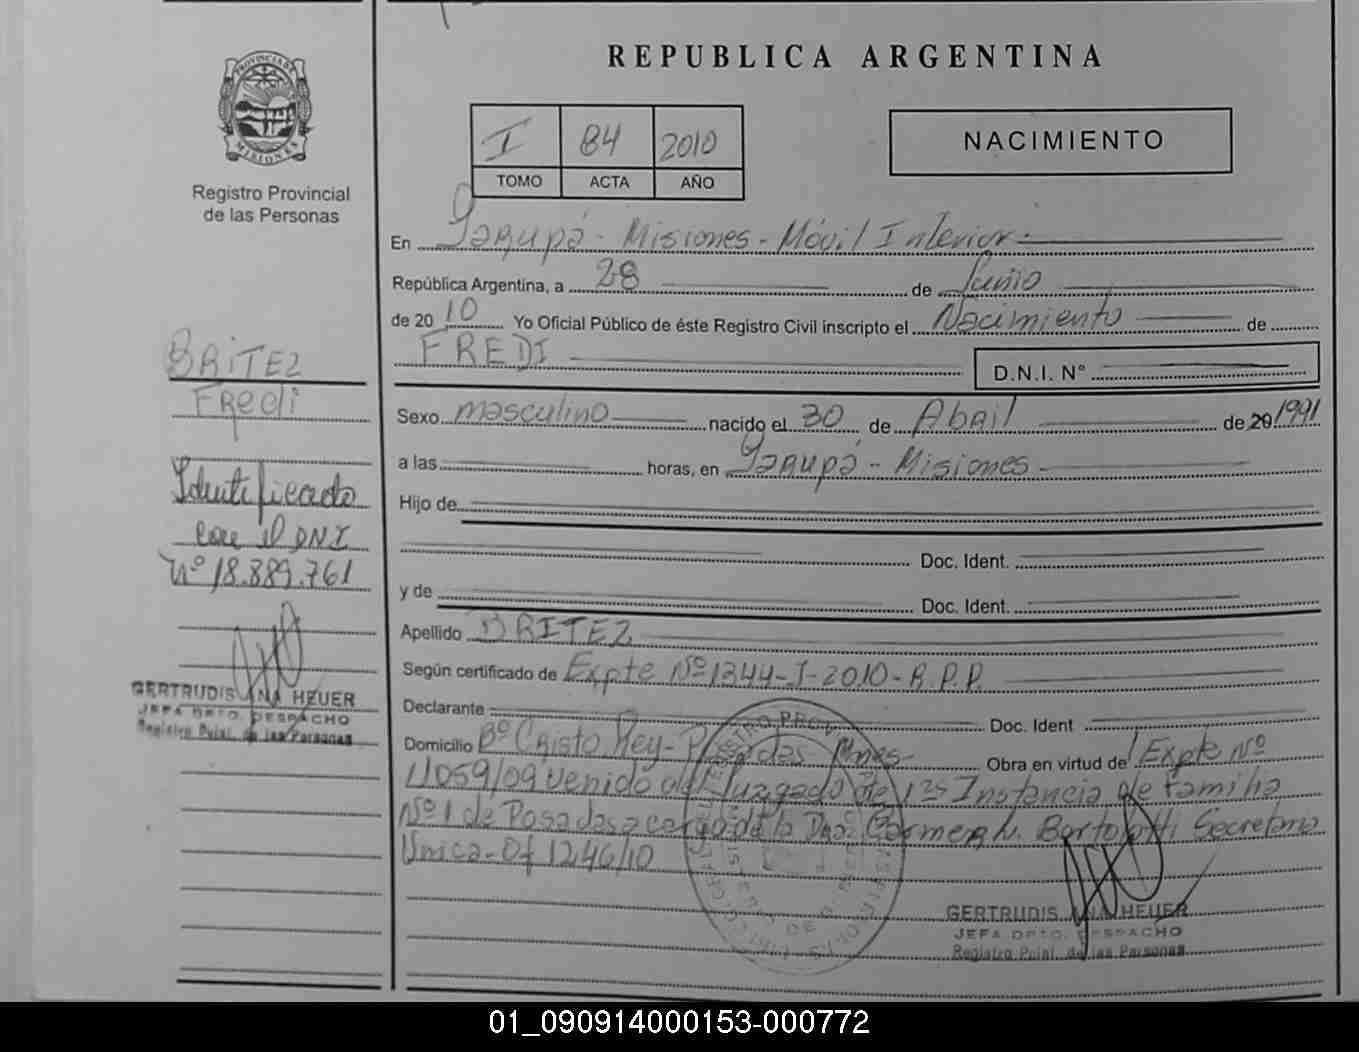 REPUBLICA ARGENTINA
PROVINCIA DE
MISIONES
Registro Provincial
de las Personas
I 84 2010
TOMO ACTA AÑO
NACIMIENTO
En Garupá - Misiones - Móvil Interior.
República Argentina, a 28 de Junio
de 20 10 Yo Oficial Público de éste Registro Civil inscripto el Nacimiento de
FREDI D.N.I. N°
Sexo masculino nacido el 30 de Abril de 20 1991
a las horas, en Garupá - Misiones
Hijo de
Doc. Ident.
y de Doc. Ident.
Apellido BRITEZ
Según certificado de Expte Nº 1344-I-2010-R.P.P.
Declarante Doc. Ident
Domicilio Bº Cristo Rey - Posadas Mnes - Obra en virtud de Expte Nº
11059/09 venido del Juzgado de 1ra Instancia de Familia
Nº 1 de Posadas a cargo de la Dra. Carmen L. Bortolotti Secretaria
Unica - Of 1246/10
GERTRUDIS ANA HEUER
JEFA DPTO. DESPACHO
Registro Pcial. de las Personas
BRITEZ
Fredi
Identificado
con el DNI
Nº 18.889.761
GERTRUDIS ANA HEUER
JEFA DPTO. DESPACHO
Registro Pcial. de las Personas
01_090914000153-000772